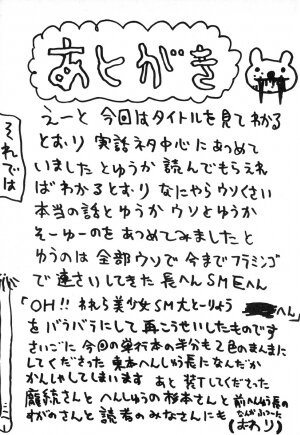 あとがき
えーと 今回はタイトルを見てわかる
とおり 実話ネタ中心にあつめて
いました とゆうか 読んでもらえれ
ばわかるとおり なにやらウソくさい
本当の話とゆうか ウソとゆうか
そーゆーのを あつめてみましたと
ゆうのは 全部ウソで 今までフラミンゴ
で連さいしてきた 長へんSMEへん
「OH!! われら美少女SM大とーりょう へん」
をバラバラにして再こうせいしたものです
さいごに 今回の単行本の半分も2色のまんまに
してくださった 東本へんしゅう長になんだか
かんしゃしてしまいます あと 装Tしてくださった
続さんと へんしゅうの杉本さんと 前へんしゅう長の
わがのさんと 読者のみなさんにも
(おわり)
それでは